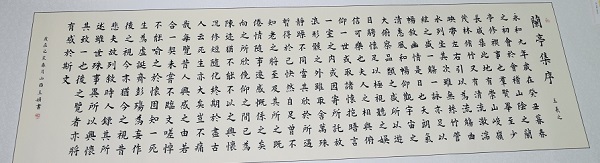 蘭亭集序
王羲之
永和九年歲在癸丑暮春
之初會于會稽山陰之蘭
亭修禊事也群賢畢至少
長咸集此地有崇山峻領
茂林修竹又有清流激湍
映帶左右引以為流觴曲
水列坐其次雖無絲竹管
弦之盛一觴一詠亦足以
暢敘幽情是日也天朗氣
清惠風和暢仰觀宇宙之
大俯察品類之盛所以遊
目騁懷足以極視聽之娛
信可樂也夫人之相與俯
仰一世或取諸懷抱悟言
一室之內或因寄所託放
浪形骸之外雖趣舍萬殊
靜躁不同當其欣於所遇
暫得於己快然自足曾不
知老之將至及其所之既
倦情隨事遷感慨係之矣
向之所欣俛仰之間已為
陳迹猶不能不以之興懷
況修短隨化終期於盡古
人云死生亦大矣豈不痛
哉每覽昔人興感之由若
合一契未嘗不臨文嗟悼
不能喻之於懷固知一死
生為虛誕齊彭殤為妄作
後之視今亦猶今之視昔
悲夫故列敘時人錄其所
述雖世殊事異所以興懷
其致一也後之覽者亦將
有感於斯文